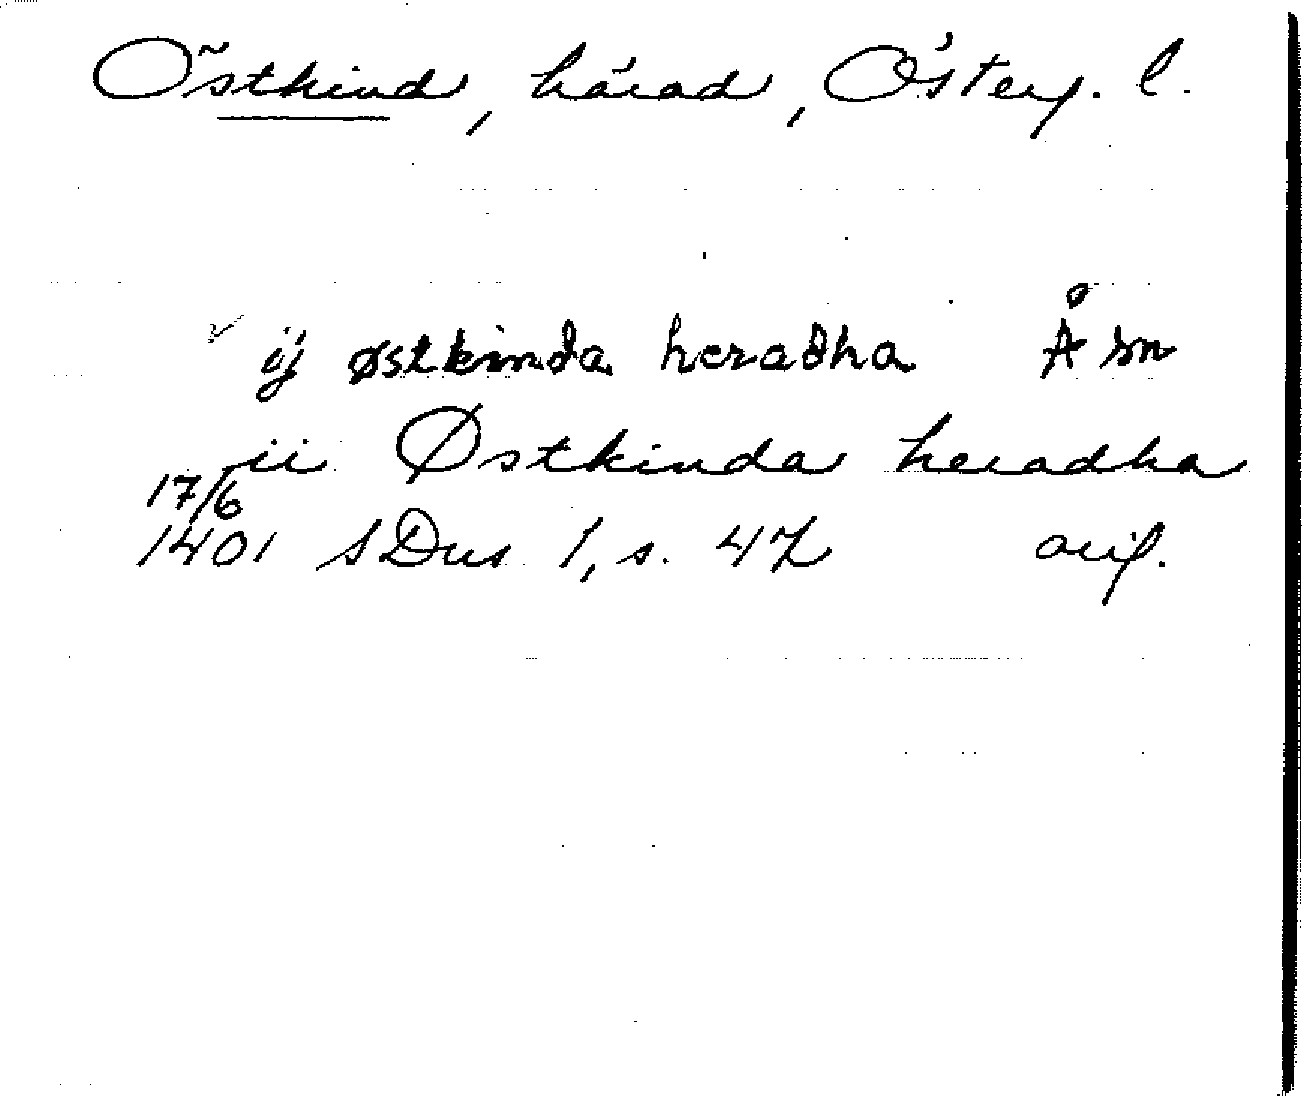 Östkind, härad, Österg. l.
ij østkinda heradha Åm
ii Østkinda heradha
17/6
1401 SDns 1, s. 47 avif.